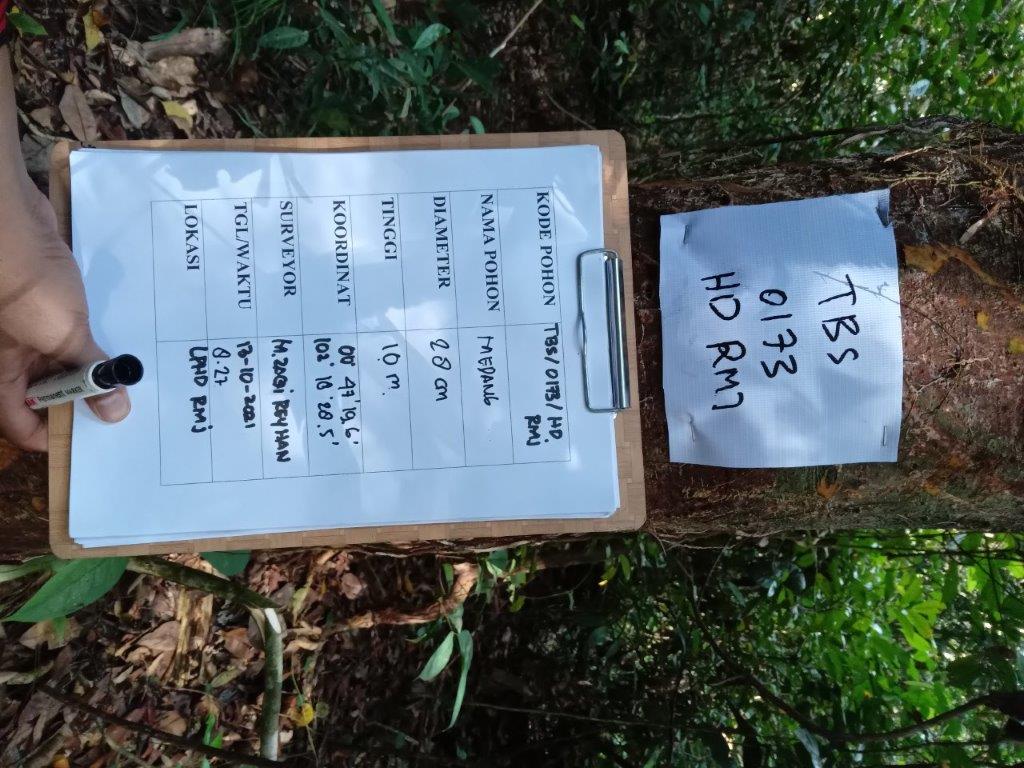 TBS
0173
HD RMJ
KODE POHON TBS/0173/HD.
RMJ
NAMA POHON MEDANG
DIAMETER 28 cm
TINGGI 10 m.
KOORDINAT 00° 47' 19.6'
102° 18' 28.5'
SURVEYOR M. ZAQI REYHAN
TGL/WAKTU 13-10-2021
8.27
LOKASI LPHD RMJ